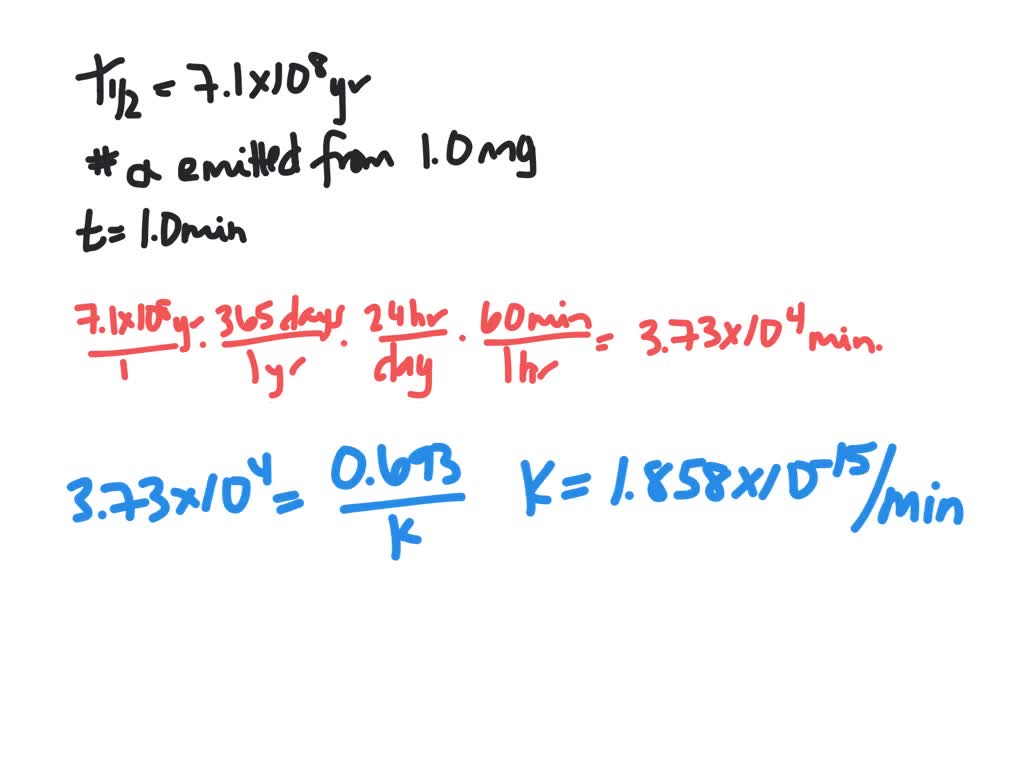 t1/2 = 7.1x10^8 yr
# α emitted from 1.0mg
t= 1.0min
7.1x10^8yr/1 · 365 days/1yr · 24hr/day · 60min/1hr = 3.73x10^4 min.
3.73x10^4 = 0.693/K K= 1.858x10^-15/min